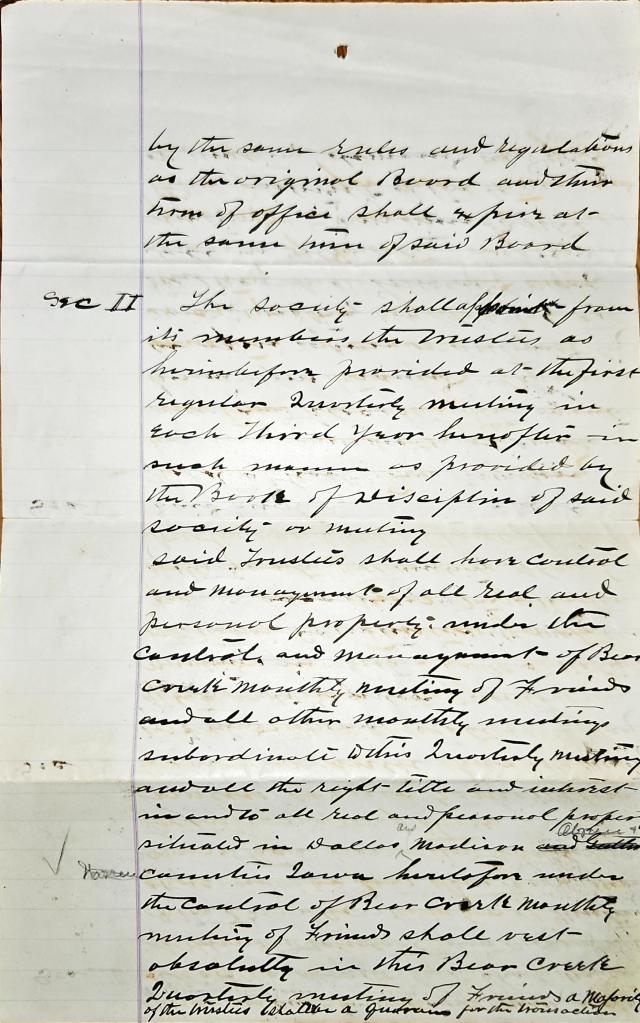 by the same rules and regulations
as the original Board and their
term of office shall expire at
the same time of said Board
Sec II The society shall appoint from
its members the trustees as
hereinbefore provided at the first
regular Quarterly meeting in
each Third Year hereafter in
such manner as provided by
the Book of Disciplin of said
society or meeting
said Trustees shall have control
and management of all real and
personal property under the
control and management of Bear
Creek Monthly Meeting of Friends
and all other monthly meetings
subordinate to this Quarterly Meeting
and all the right title and interest
in and to all real and personal proper
situated in Dallas and Madison and
Warren counties Iowa heretofore under
the control of Bear Creek Monthly
meeting of Friends shall vest
absolutly in this Bear Creek
Quarterly meeting of Friends a Majority
of the trustees shall be a quorum for the transaction